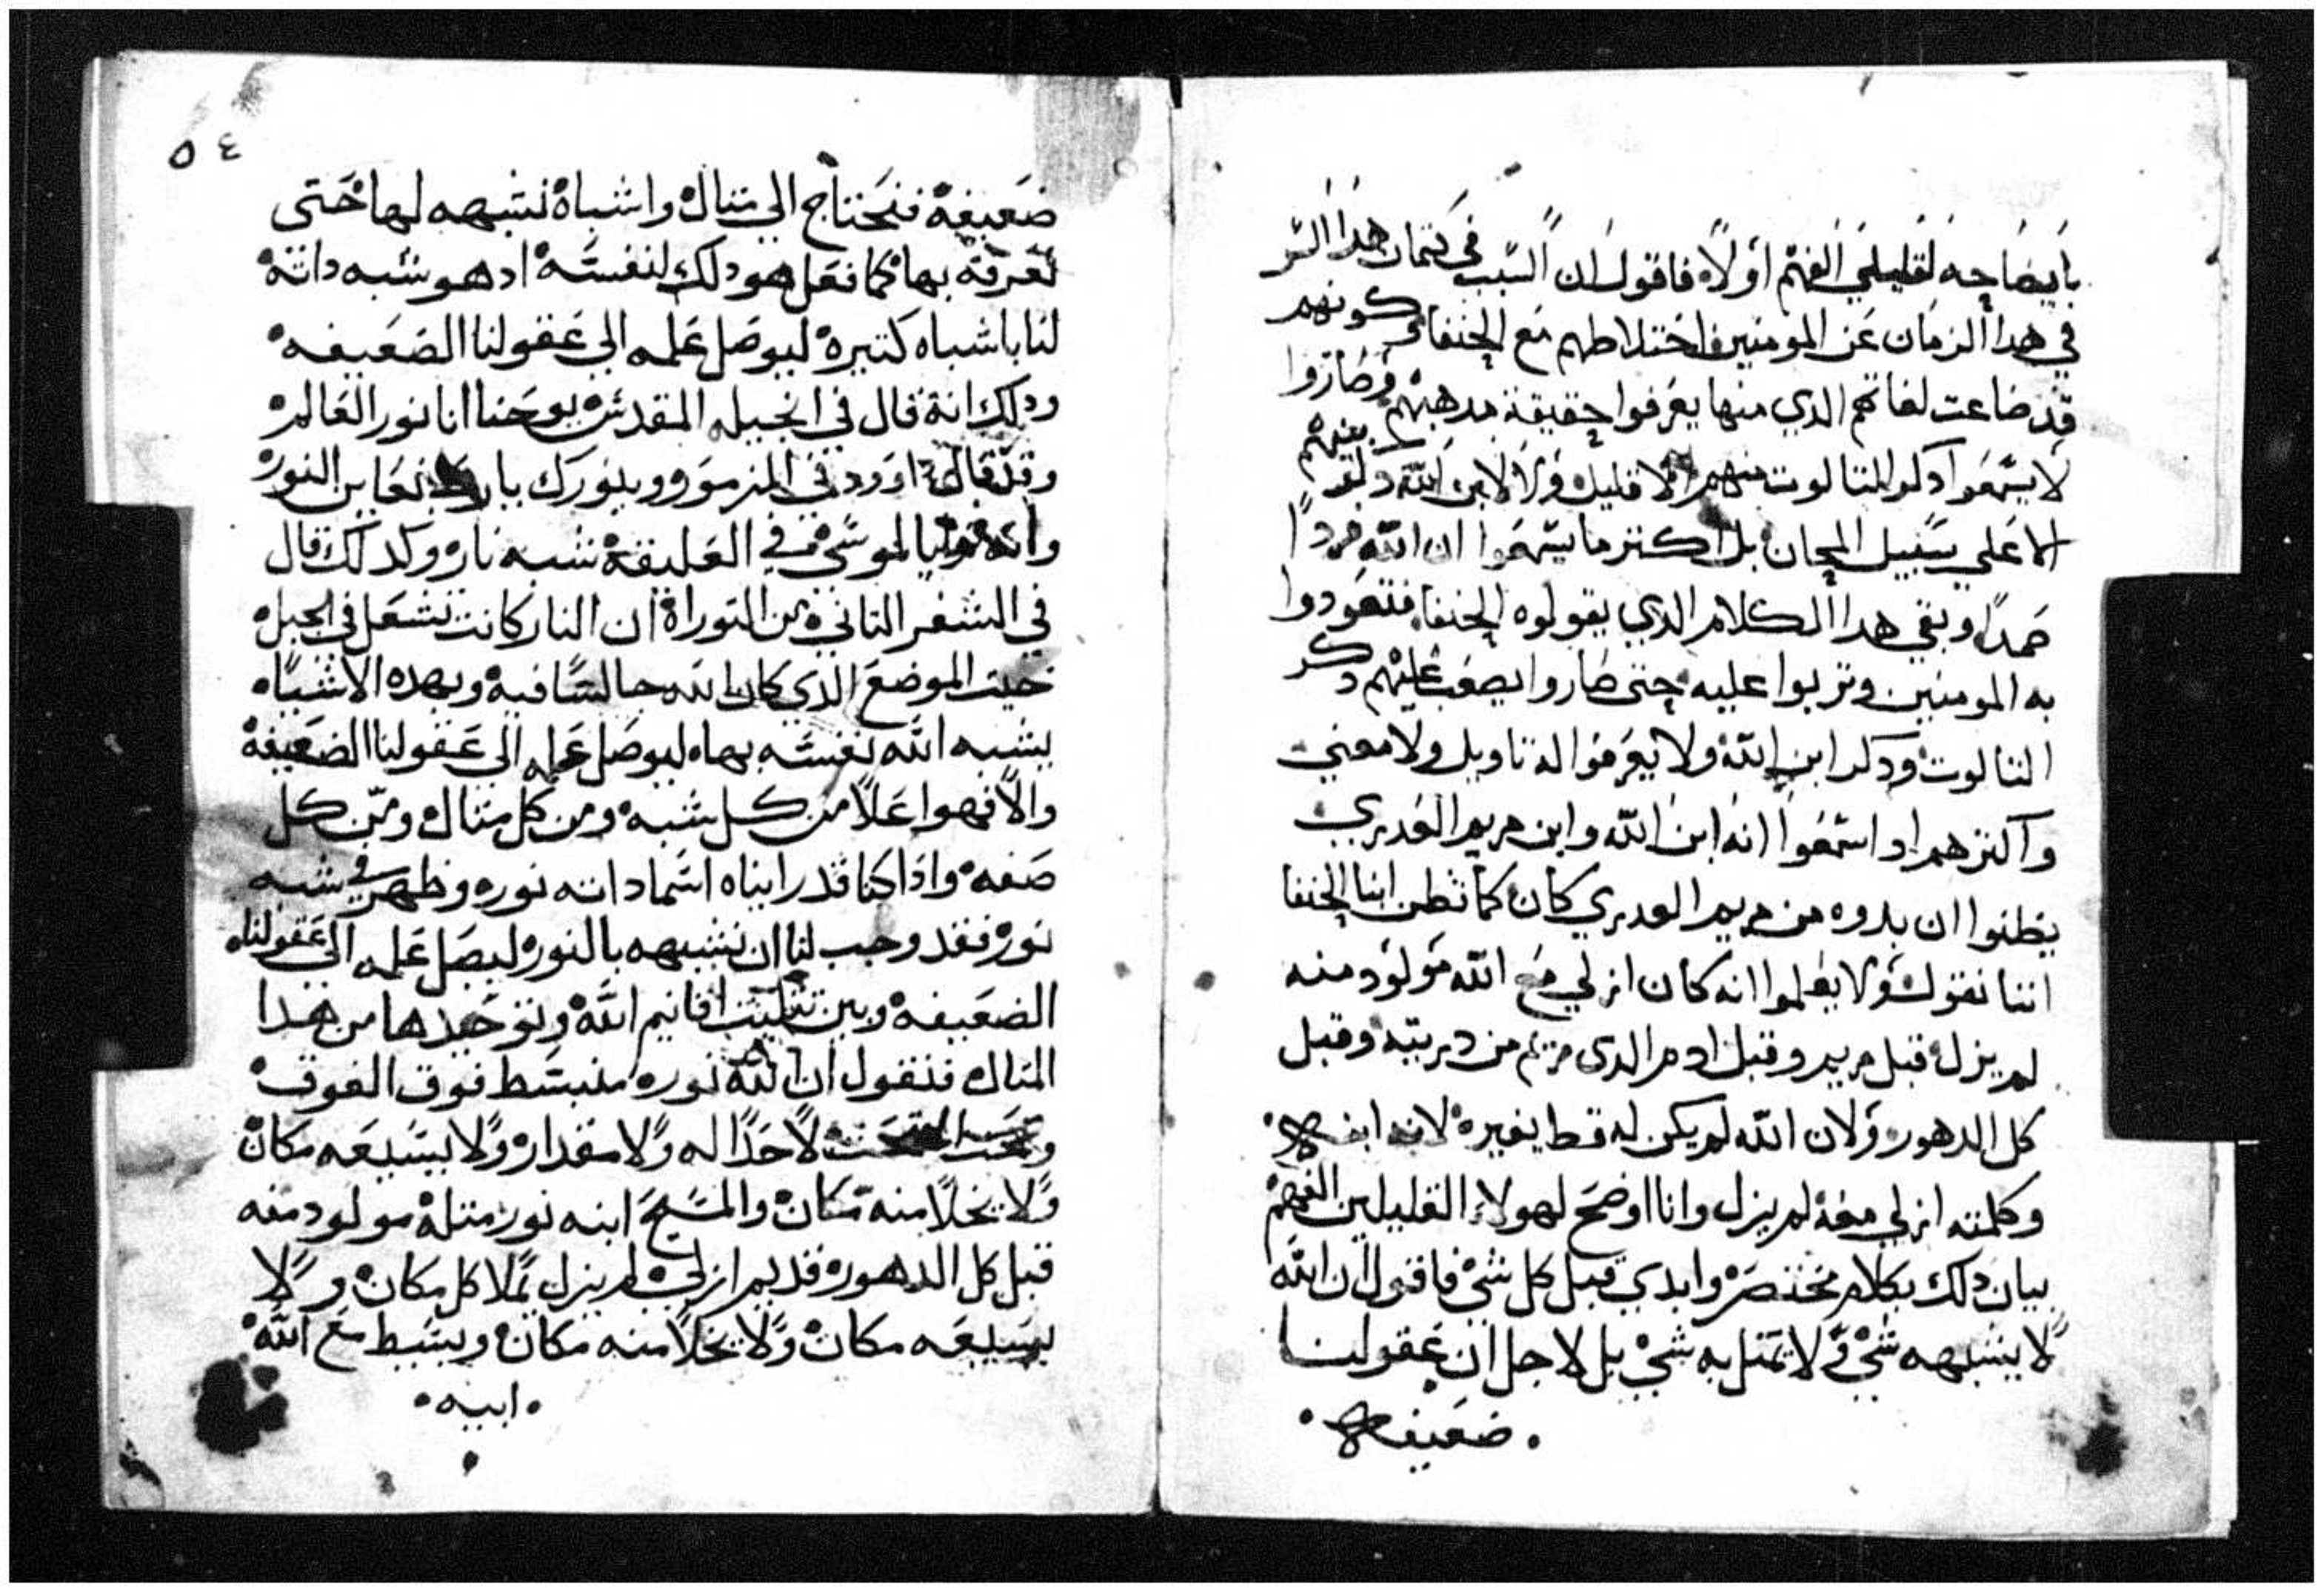 بايضاحه لقليلي الفهم اولا فاقول ان السبب في كتمان هدا السر
في هدا الزمان عن المومنين اختلاطهم مع الحنفا وكونهم
قد ضاعت لغاتهم الدي منها يعرفوا حقيقة مدهبهم وصاروا
لا يسمعوا دكر التالوت بينهم الا قليل ولا لابن الله دكر
الا علي سبيل المجان بل اكتر ما يسمعوا ان الله فردا
صمدا وبقي هدا الكلام الدي يقولوه الحنفا فتعودوا
به المومنين وتربوا عليه حتى صاروا يصعب عليهم دكر
التالوت ودكر ابن الله ولا يعرفوا له تاويل ولا معني
واكترهم اد اسمعوا انه ابن الله وابن مريم العدري
يظنوا ان بدوه من مريم العدري كان كما تظن ابنا الحنفا
اننا نقول ولا يعلموا انه كان ازلي مع الله مولود منه
لم يزل قبل مريم وقبل ادم الدى مريم من دريته وقبل
كل الدهور ولان الله لم يكن له قط بغيره لانه ابنه
وكلمته ازلي معه لم يزل وانا اوضح لهولاء القليلين الفهم
بيان دلك بكلام مختصر وابدي قبل كل شي فاقول ان الله
لا يشبهه شي ولا تمتل به شي بل لاجل ان عقولنا
ضعيفه
٥٤
ضعيفة فنحتاج الي متال واشباه نشبهه لها حتى
نعرفه بها كما فعل هو دلك لنفسه اد هو شبه داته
لنا باشباه كتيرة ليوصل علمه الي عقولنا الضعيفه
ودلك انه قال في انجيله المقدس يوحنا انا نور العالم
وقد قال داوود في المزمور وبنورك يا رب نعاين النور
وانه لموسى في العليقة شبه نار وكدلك قال
في السفر التاني من التوراة ان النار كانت تشعل في الجبل
حيت الموضع الدي كان الله جالسا فيه وبهده الاشباه
يشبه الله نفسه بها ليوصل علمه الي عقولنا الضعيفة
والا فهوا علا من كل شبه ومن كل متال ومن كل
صفه وادا كنا قد راينا اسما داته نور وظهر في شبه
نور فقد وجب لنا ان نشبهه بالنور ليصل علمه الي عقولنا
الضعيفه وبين تتليت اقانيم الله وتوحيدها من هدا
المتال فنقول ان الله نور منبسط فوق الفوق
وتحت التحت لا حدا له ولا مقدار ولا يسيعه مكان
ولا يخلا منه مكان والمسيح ابنه نور متله مولود منه
قبل كل الدهور قديم ازلي لم يزل يملا كل مكان ولا
يسيعه مكان ولا يخلا منه مكان وبسيط مع الله
ابيه